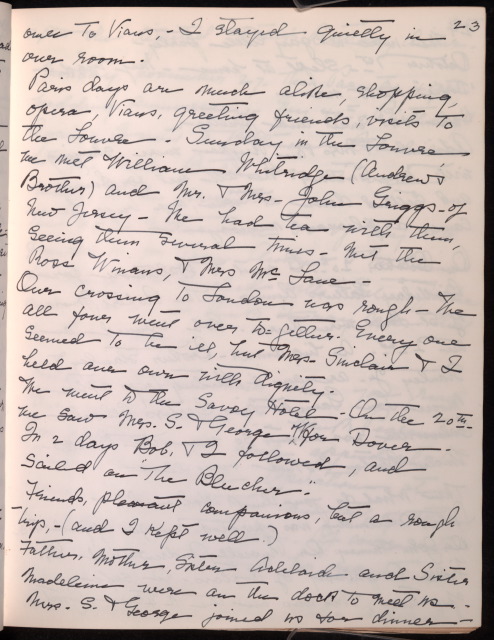 23
over to Viaus, - I stayed quietly in
our room.
Paris days are much alike, shopping,
opera, Viaus, greeting friends, visits to
the Louvre. Sunday in the Louvre
we met William Whitridge (Andrew's
Brother) and Mr. & Mrs. John Griggs - of
New Jersey - We had tea with them,
seeing them several times - Met the
Ross Winans, & Mrs Mc Lane -
Our crossing to London was rough - We
all four went over to-gether. Every one
seemed to be ill, but Mrs. Sinclair & I
held our own with dignity.
We went to the Savoy Hotel - On the 20th
we saw Mrs. S. & George off for Dover -
In 2 days Bob, & I followed, and
Sailed on "The Blucher".
Friends, pleasant companions, but a rough
trip, - (and I kept well.)
Father, Mother, Sister Adelaide and Sister
Madeleine were on the dock to meet us -
Mrs. S. & George joined us for dinner -